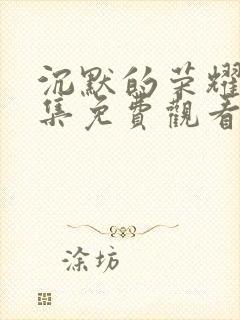 沉默的荣耀
集免費觀看
涂坊